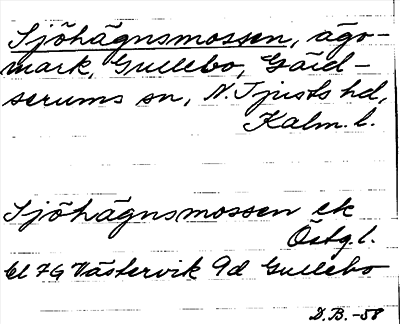 Sjöhägnsmossen, ägo-
mark, Gullebo, Gärd-
serums sn, N. Tjusts hd,
Kalm. l.
Sjöhägnsmossen ek
Östg. l.
bl 7G Västervik 9d Gullebo
D.B. -58